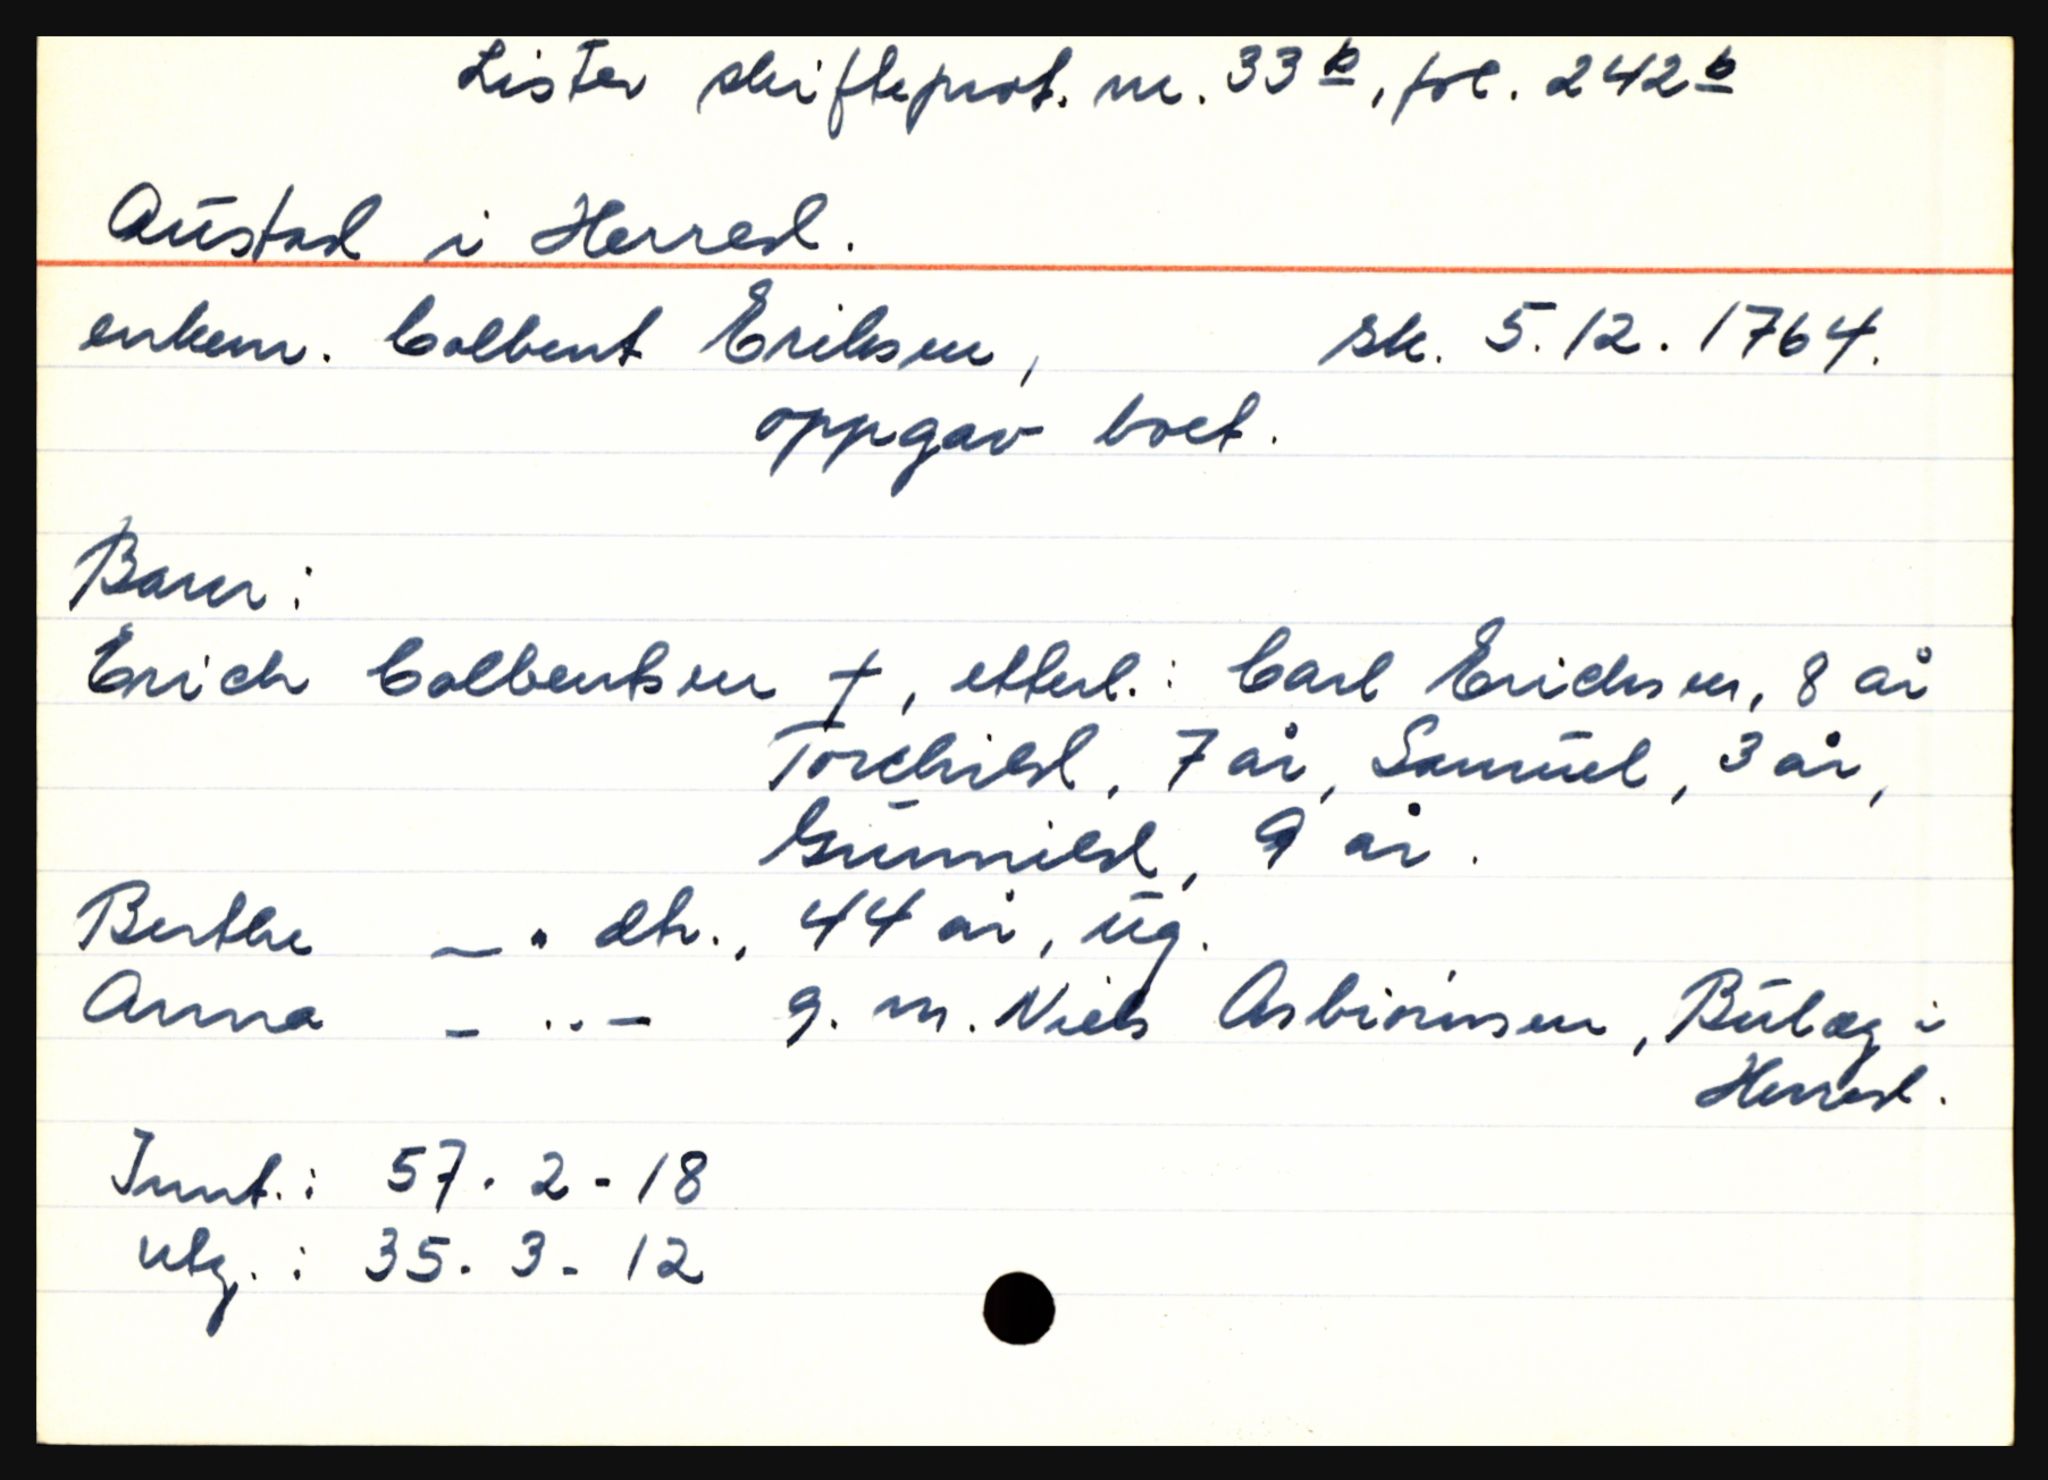 Lister skifteprot. nr. 33 b, fol. 242 b
Austad i Herred.
enkem. Colbent Eriksen, sk. 5.12.1764.
oppgav boet.
Barn:
Erich Colbentsen †, etterl.: Carl Erichsen, 8 år
Torchild, 7 år, Samuel, 3 år,
Gunnild, 9 år.
Berthe — " dtr., 44 år, ug.
Anna - " - g. m. Niels Asbiørnsen, Buläg i
Herred.
Innt.: 57 - 2 - 18
utg.: 35 - 3 - 12